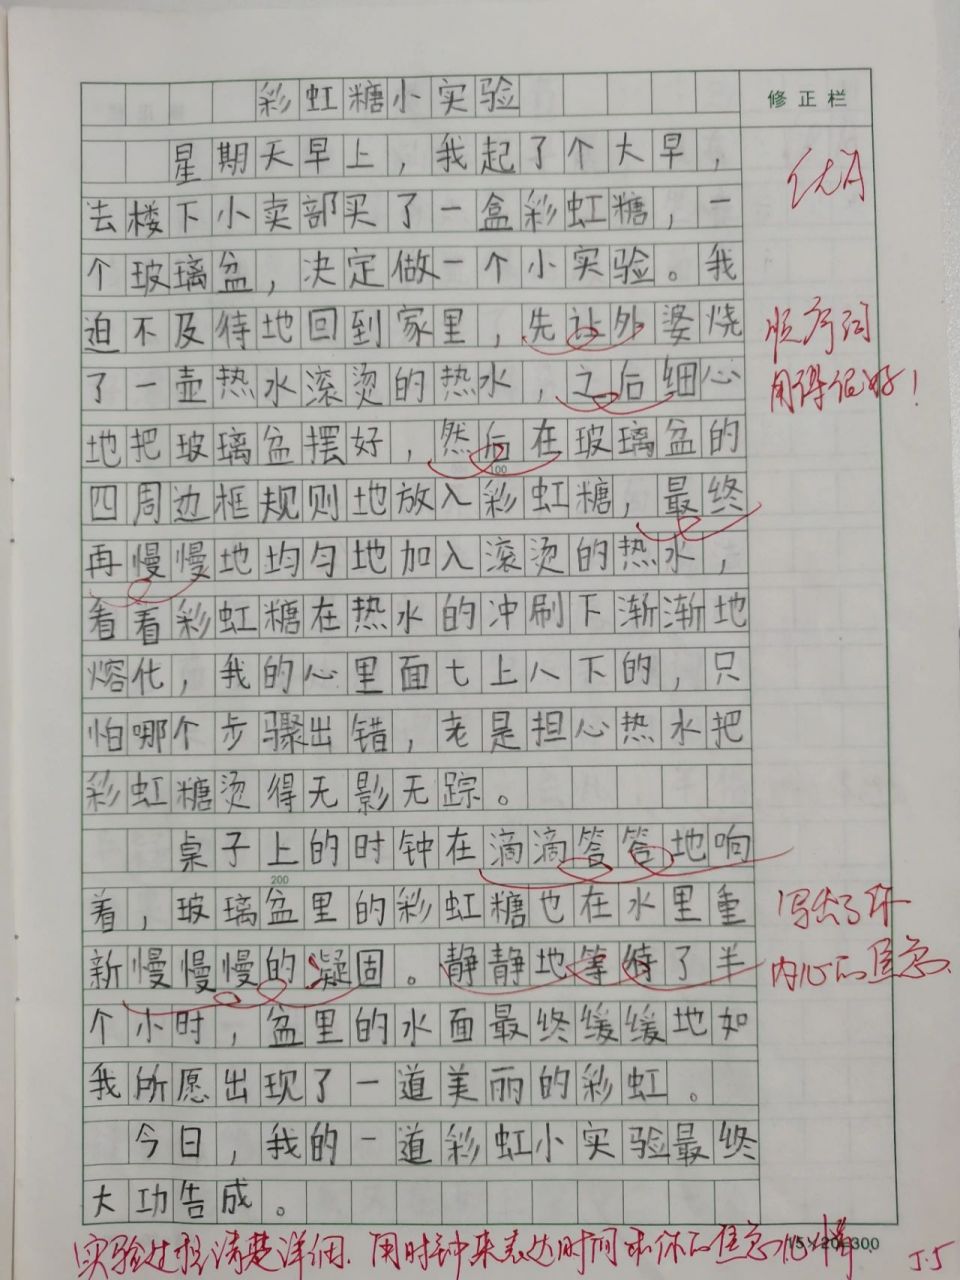 彩虹糖小实验
修正栏
星期天早上，我起了个大早，
优A
去楼下小卖部买了一盒彩虹糖，一
个玻璃盆，决定做一个小实验。我
迫不及待地回到家里，先让外婆烧
顺序词
了一壶热水滚烫的热水，之后细心
用得很好！
地把玻璃盆摆好，然后在玻璃盆的
100
四周边框规则地放入彩虹糖，最终
再慢慢地均匀地加入滚烫的热水，
看看彩虹糖在热水的冲刷下渐渐地
熔化，我的心里面七上八下的，只
怕哪个步骤出错，老是担心热水把
彩虹糖烫得无影无踪。
桌子上的时钟在滴滴答答地响
200
着，玻璃盆里的彩虹糖也在水里重
写出了你
新慢慢慢的凝固。静静地等待了半
内心的焦急
个小时，盆里的水面最终缓缓地如
我所愿出现了一道美丽的彩虹。
今日，我的一道彩虹小实验最终
大功告成。
实验过程清楚详细，用时钟来表达时间和你的焦急心情
15×20=300
5.5